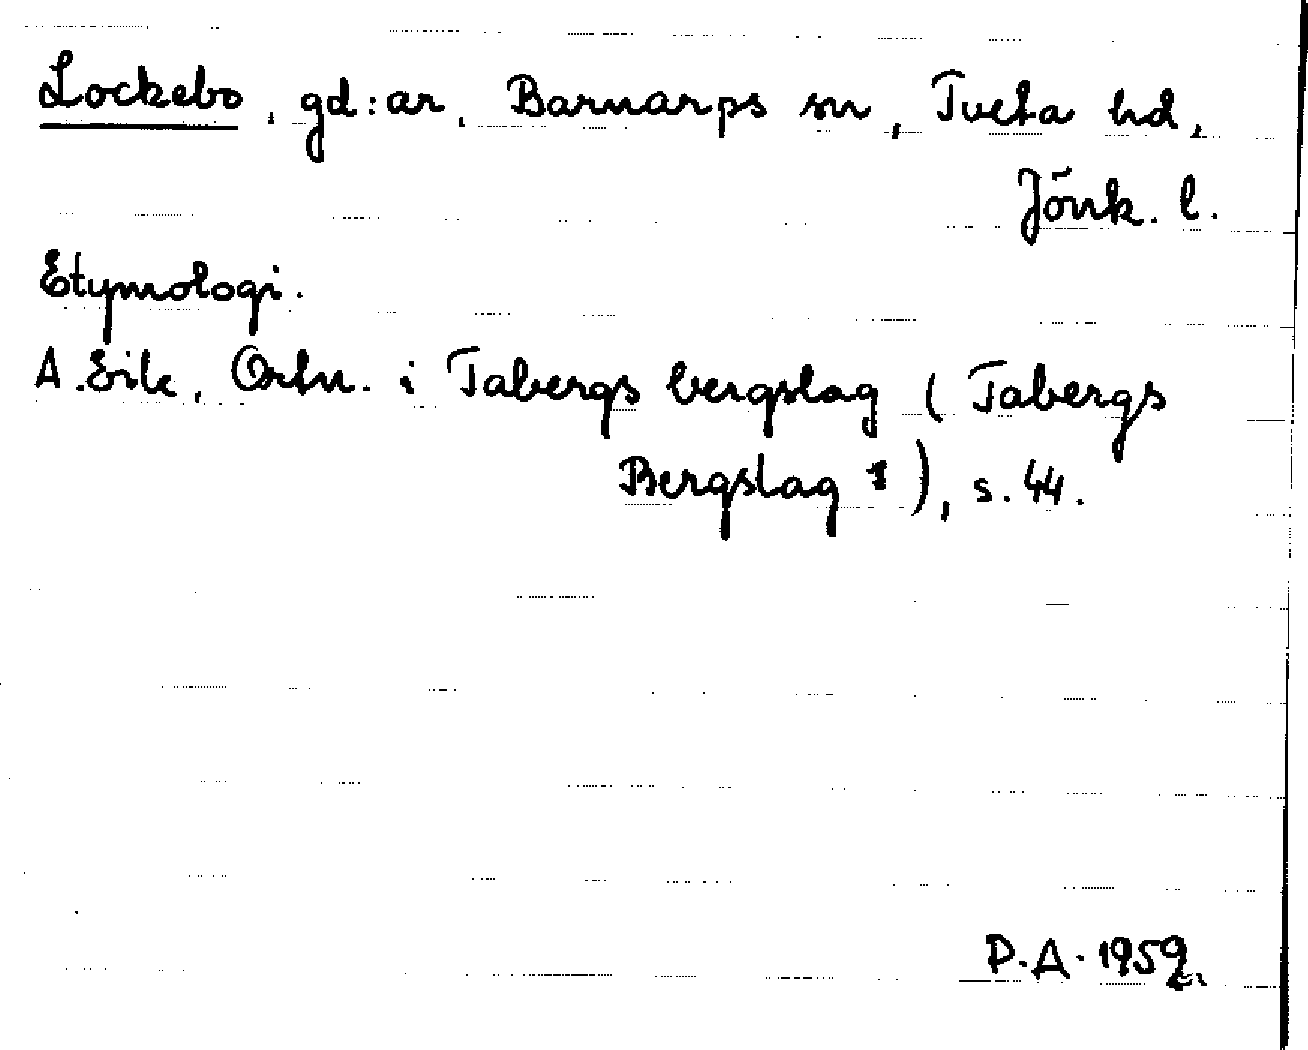 Lockebo, gd:ar, Barnarps sn, Tveta hd,
Jönk. l.
Etymologi.
A. Eile, Ortn. i Tabergs bergslag (Tabergs
Bergslag 1), s. 44.
P.A. 1959.